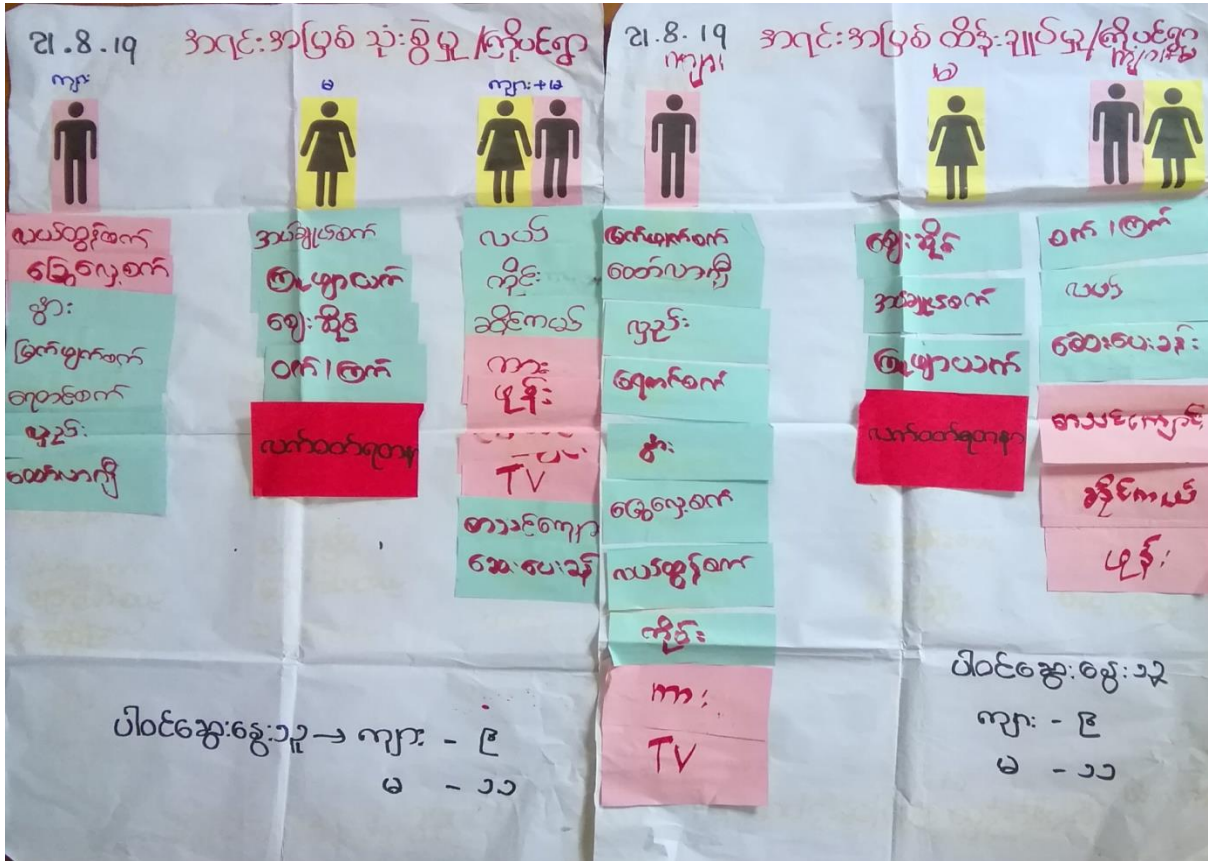 အရင်းအမြစ် သုံးစွဲမှု/ကြို့ပင်ရွာ
ကျား
မ
ကျား+မ
လယ်ထွန်စက်
ခြွေလှေ့စက်
နွား
မြက်ဖျက်စက်
ရေတင်စက်
လှည်း
ထော်လာဂျီ
အပ်ချုပ်စက်
ဈေးဆိုင်
ဝက်၊ကြက်
လက်ဝတ်ရတနာ
လယ်
ကိုင်း
ဆိုင်ကယ်
ကား
ဖုန်း
TV
စာသင်ကျောင်
ဆေးပေးခန်
ပါဝင်ဆွေးနွေးသူ → ကျား - ၉
မ - ၁၁
အရင်းအမြစ် ထိန်းချုပ်မှု/ကြို့ပင်ရွာ
ကျား
မ
ကျား+မ
မြက်ဖျက်စက်
ထော်လာဂျီ
လှည်း
ရေတင်စက်
နွား
ခြွေလှေ့စက်
လယ်ထွန်စက်
ကိုင်း
ကား
TV
ဈေးဆိုင်
အပ်ချုပ်စက်
လက်ဝတ်ရတနာ
ဝက်၊ကြက်
လယ်
ဆေးပေးခန်း
စာသင်ကျောင်း
ဆိုင်ကယ်
ဖုန်း
ပါဝင်ဆွေးနွေးသူ
ကျား - ၉
မ - ၁၁